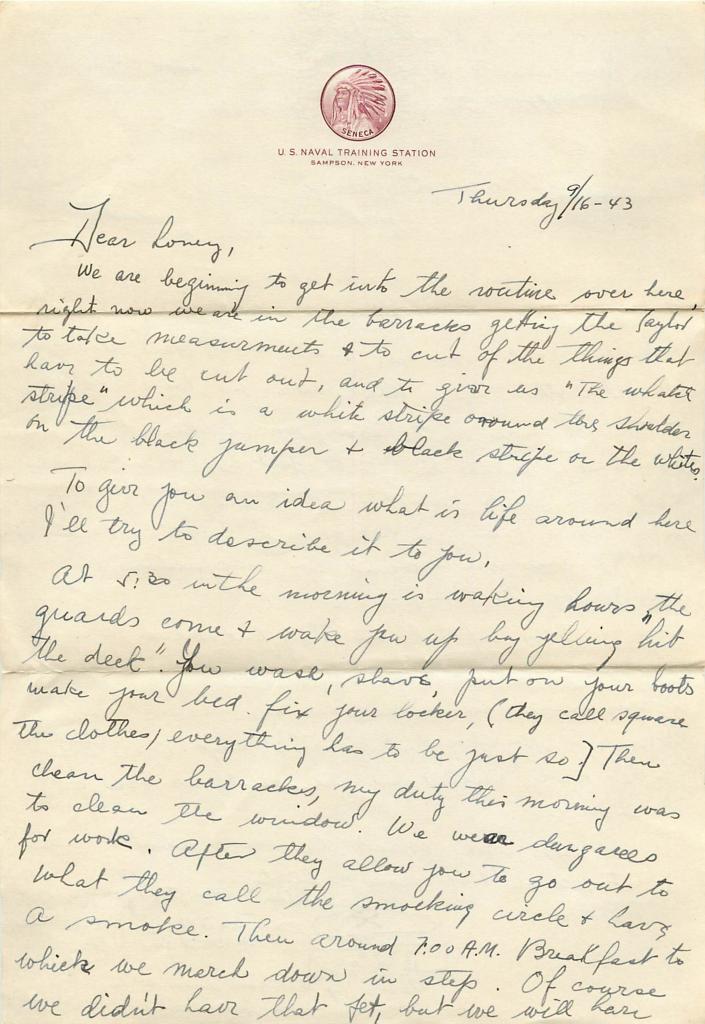 SENECA
U.S. NAVAL TRAINING STATION
SAMPSON, NEW YORK
Thursday 9/16-43
Dear honey,
We are beginning to get into the routine over here,
right now we are in the barracks getting the Taylor
to take measurments & to cut of the things that
have to be cut out, and to give us "The
stripe" which is a white stripe around the shoulder
on the black jumper & black stripe on the whites.
To give you an idea what is life around here
I'll try to describe it to you.
At 5:30 in the morning is waking hours, the
guards come & wake you up by yelling "hit
the deck". You wash, shave, put on your boots
make your bed, fix your locker, (they call square
the clothes, everything has to be just so.] Then
clean the barracks, my duty this morning was
to clean the window. We wear dungarees
for work. After they allow you to go out to
what they call the smocking circle & have
a smoke. Then around 7.00 A.M. Breakfast to
which we march down in step. Of course
we didn't have that yet, but we will have